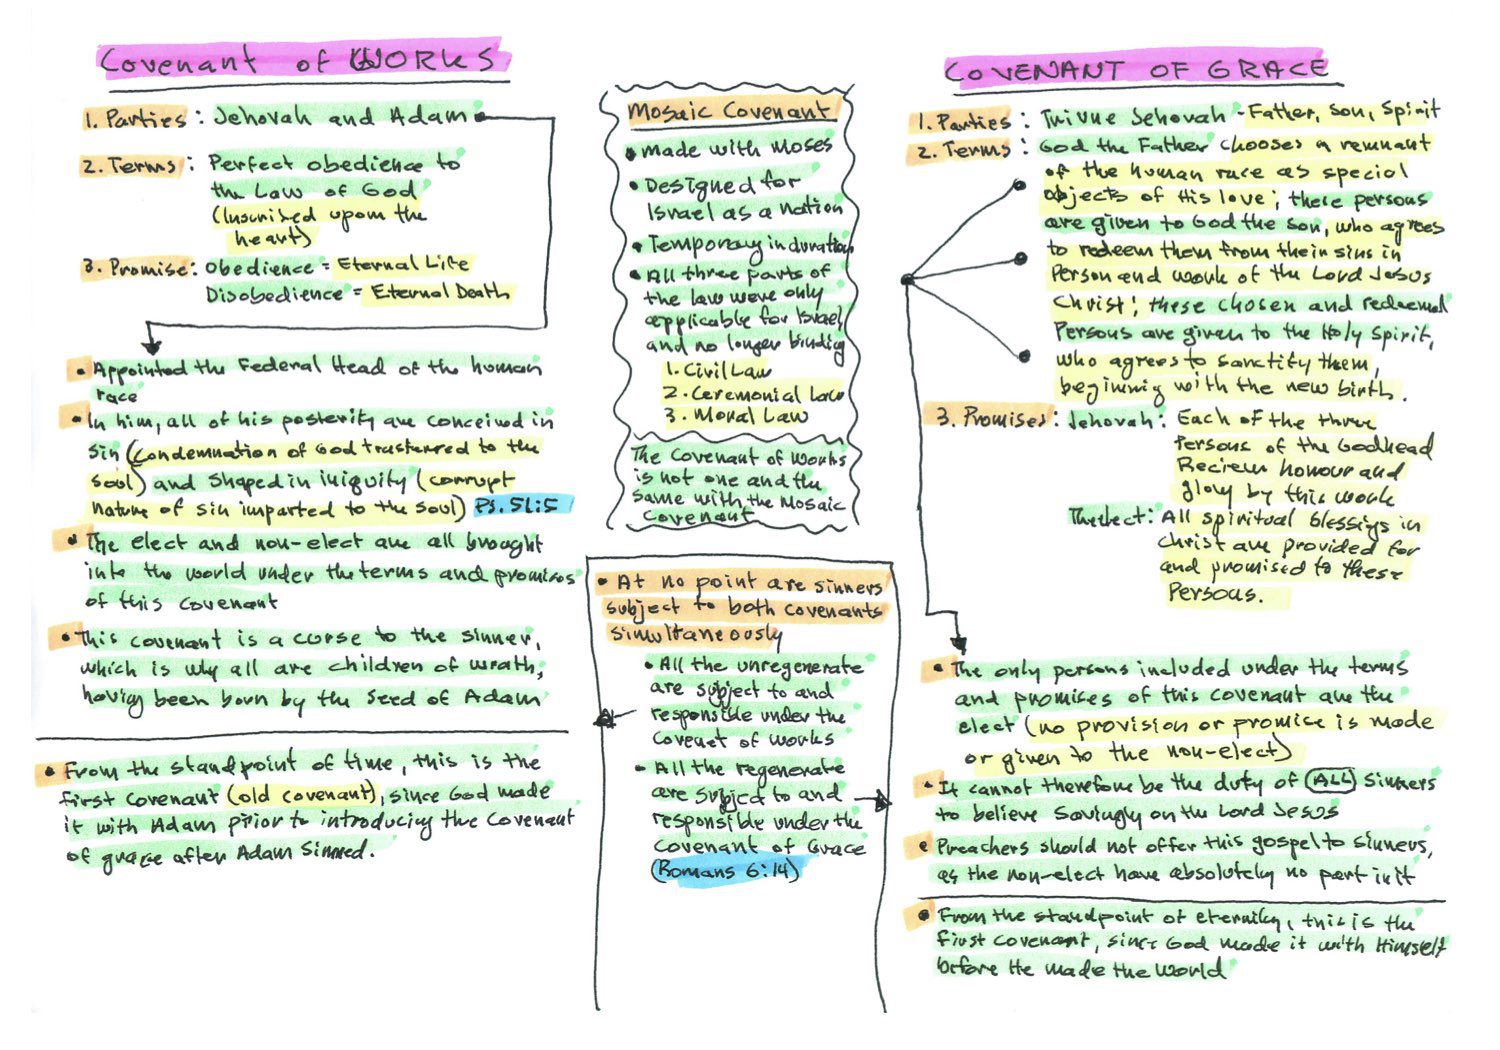 Covenant of WORKS
1. Parties: Jehovah and Adam
2. Terms: Perfect obedience to
the Law of God
(Inscribed upon the
heart)
3. Promise: Obedience = Eternal Life
Disobedience = Eternal Death
• Appointed the Federal Head of the human
race
• In him, all of his posterity are conceived in
sin (condemnation of God transferred to the
soul) and shaped in iniquity (corrupt
nature of sin imparted to the soul) Ps. 51:5
• The elect and non-elect are all brought
into the world under the terms and promises
of this covenant
• This covenant is a curse to the sinner,
which is why all are children of wrath,
having been born by the seed of Adam
• From the standpoint of time, this is the
first covenant (old covenant), since God made
it with Adam prior to introducing the covenant
of grace after Adam sinned.
Mosaic Covenant
• Made with Moses
• Designed for
Israel as a nation
• Temporary in duration
• All three parts of
the law were only
applicable for Israel
and no longer binding
1. Civil Law
2. Ceremonial Law
3. Moral Law
The Covenant of Works
is not one and the
same with the Mosaic
Covenant
• At no point are sinners
subject to both covenants
simultaneously
• All the unregenerate
are subject to and
responsible under the
Covenet of Works
• All the regenerate
are subject to and
responsible under the
Covenant of Grace
(Romans 6:14)
COVENANT OF GRACE
1. Parties: Triune Jehovah - Father, Son, Spirit
2. Terms: God the Father chooses a remnant
of the human race as special
objects of His love; these persons
are given to God the Son, who agrees
to redeem them from their sins in
Person and work of the Lord Jesus
Christ; these chosen and redeemed
Persons are given to the Holy Spirit,
who agrees to sanctify them,
beginning with the new birth.
3. Promises: Jehovah: Each of the three
Persons of the Godhead
Recieve honour and
glory by this work
The elect: All spiritual blessings in
Christ are provided for
and promised to these
Persons.
• The only persons included under the terms
and promises of this covenant are the
elect (no provision or promise is made
or given to the non-elect)
• It cannot therefore be the duty of ALL sinners
to believe savingly on the Lord Jesus
• Preachers should not offer this gospel to sinners,
as the non-elect have absolutely no part in it
• From the standpoint of eternity, this is the
first covenant, since God made it with Himself
before He made the world